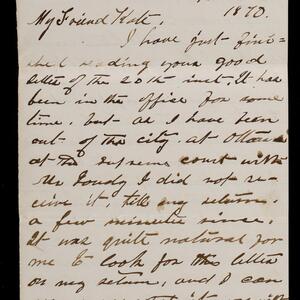 1870.
My Friend Kate,
I have just fini-
shed reading your good
letter of the 20th inst. It has
been in the office for some
time. but as I have been
out of the city. at Ottawa
at the supreme court with
Mr Goudy I did not re-
ceive it till my return.
a few minutes since.
It was quite natural for
me to look for this letter
on my return, and I can